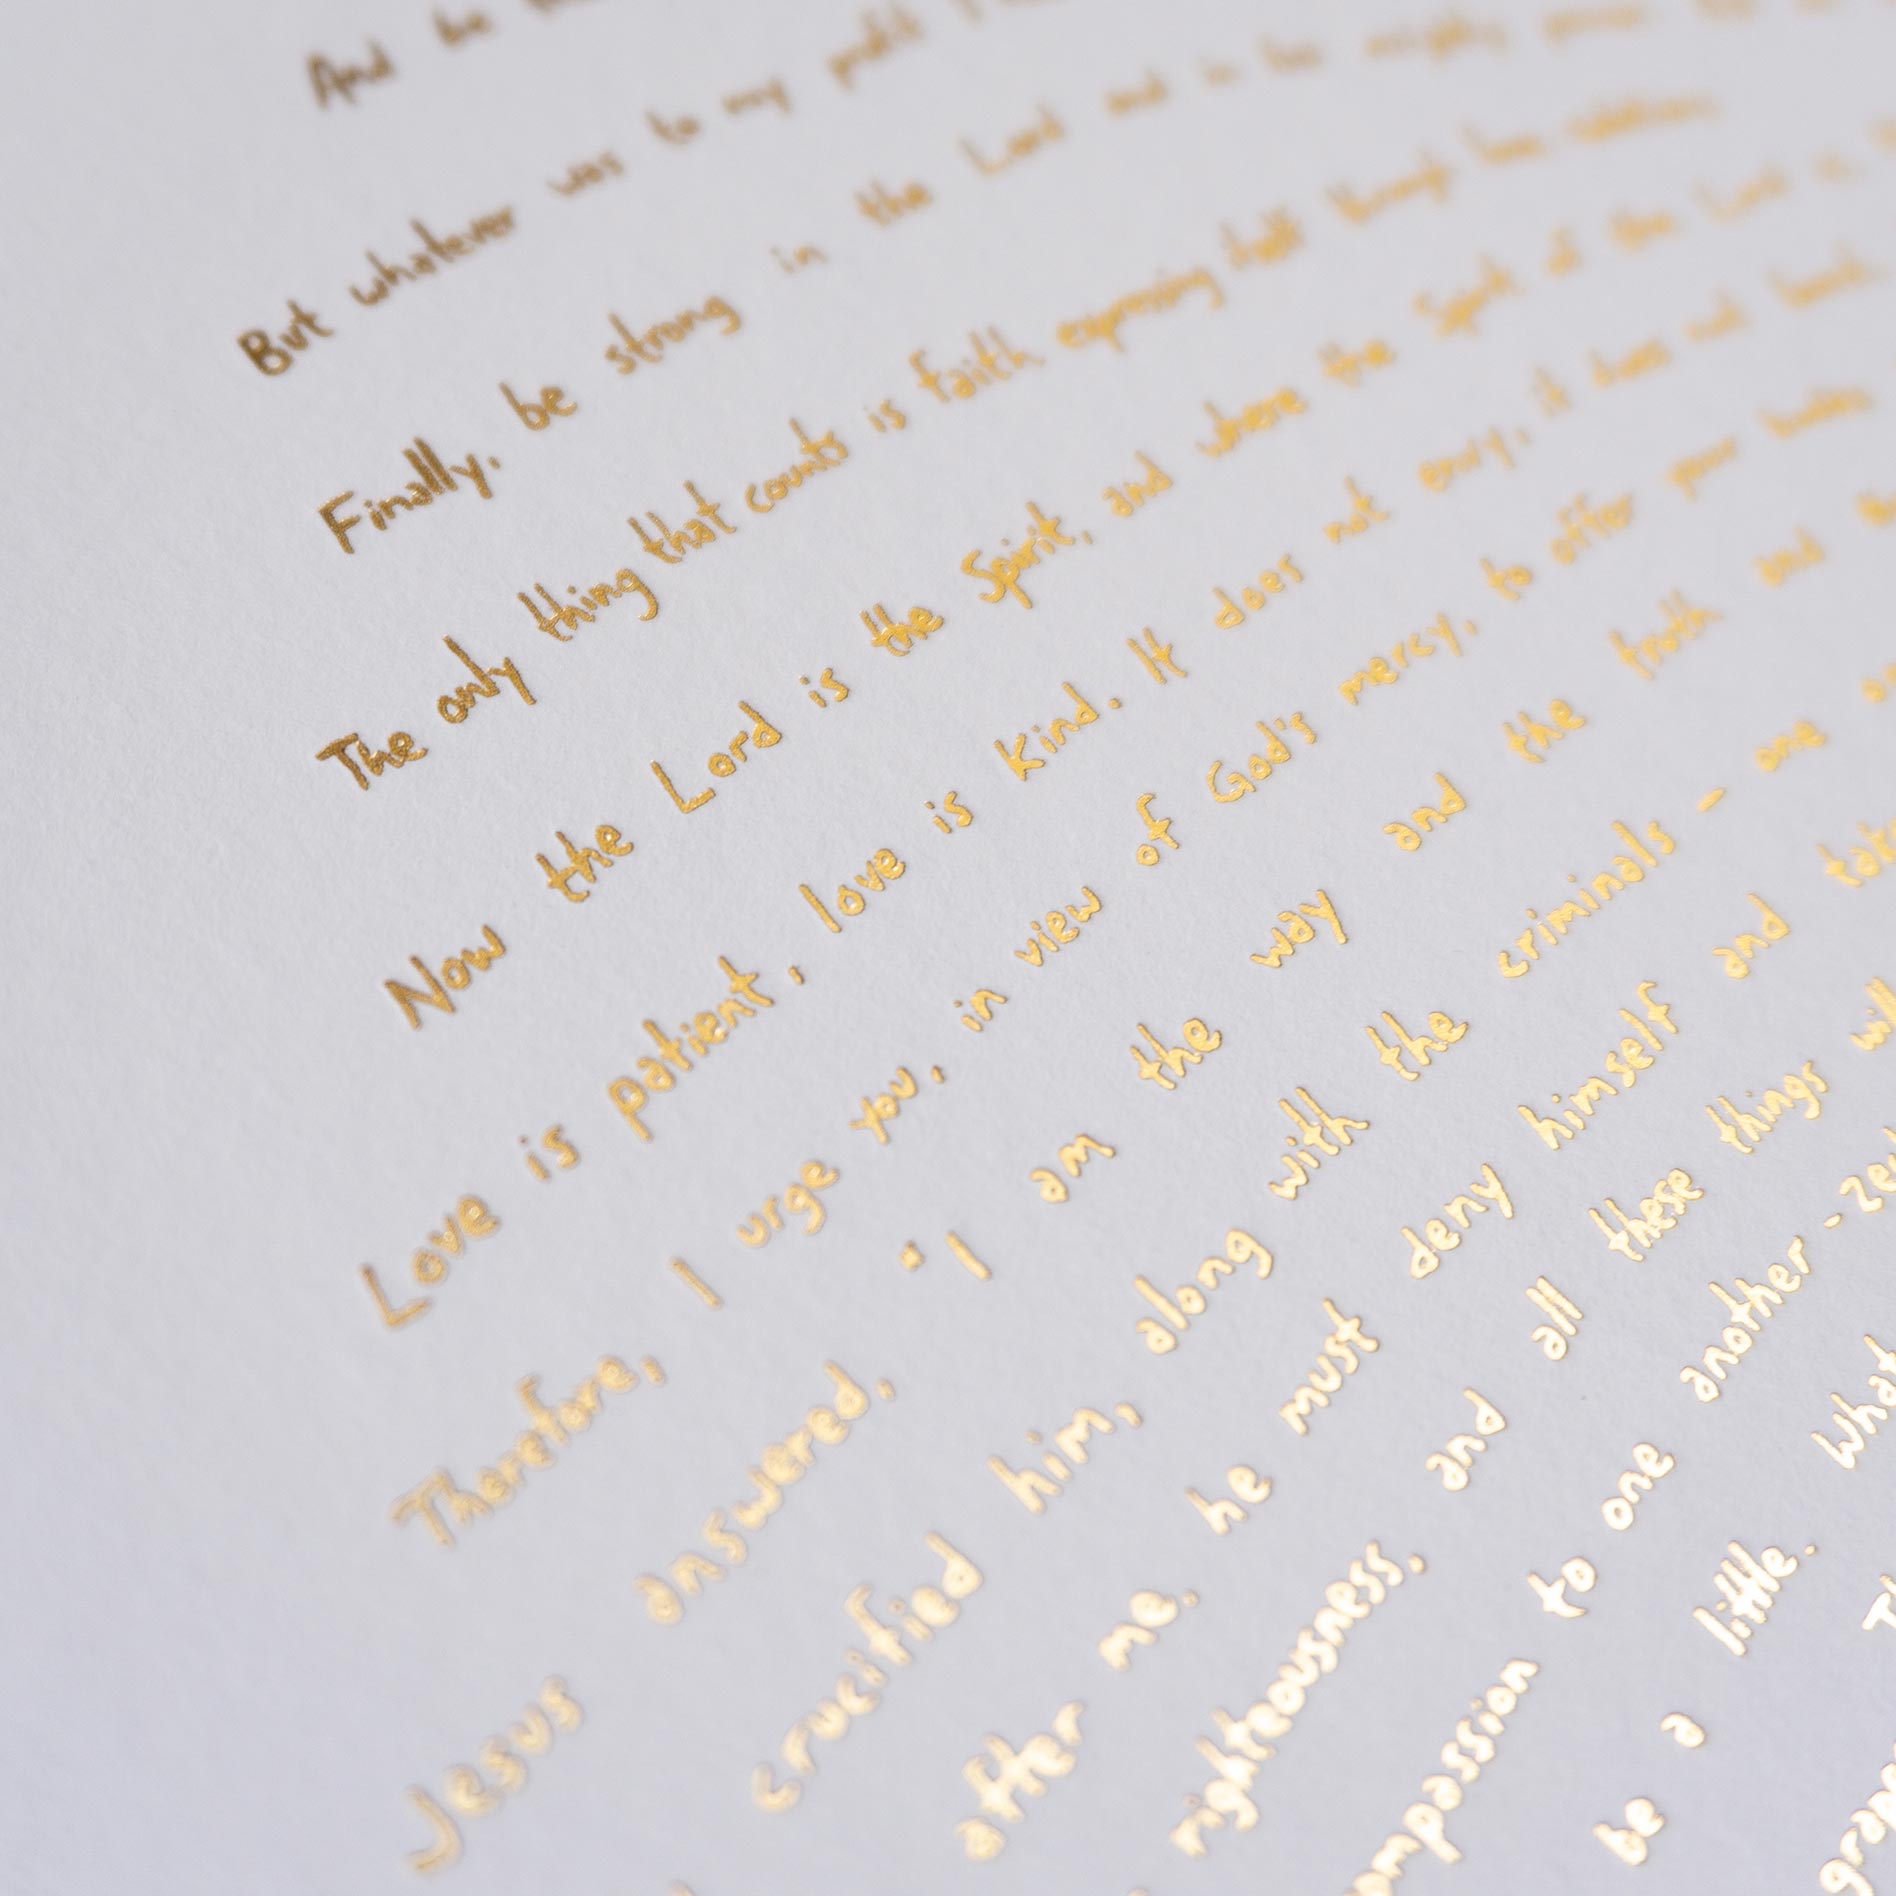 And be
But whatever was to my profit I
Finally, be strong in the Lord and in his mighty power.
The only thing that counts is faith expressing itself through love.
Now the Lord is the Spirit, and where the Spirit of the Lord is,
Love is patient, love is kind. It does not envy, it does not boast,
Therefore, I urge you, in view of God's mercy, to offer your bodies
Jesus answered, "I am the way and the truth and
crucified him, along with the criminals - one
after me. he must deny himself and take
righteousness, and all these things will
ompassion to one another - Zec
be a little. What
grap